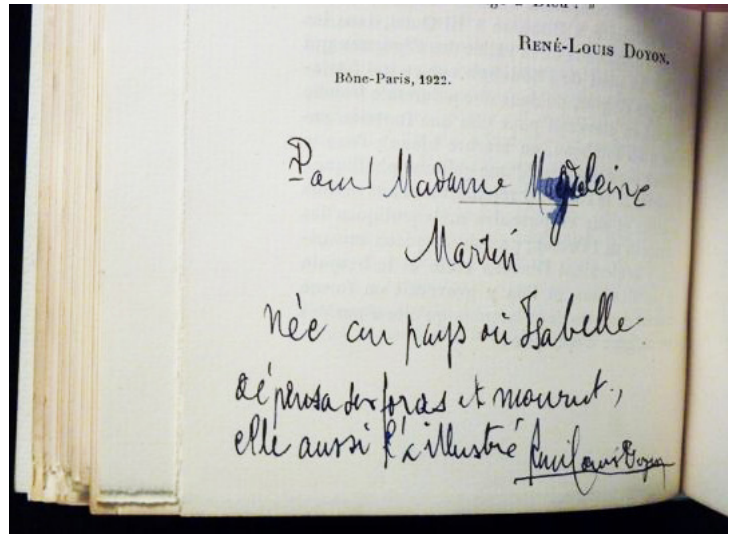 à Dieu ! »
RENÉ-LOUIS DOYON.
Bône-Paris, 1922.
Pour Madame Magdeleine
Martin
née au pays où Isabelle
dépensa ses forces et mourut,
elle aussi l'a illustré René-Louis Doyon